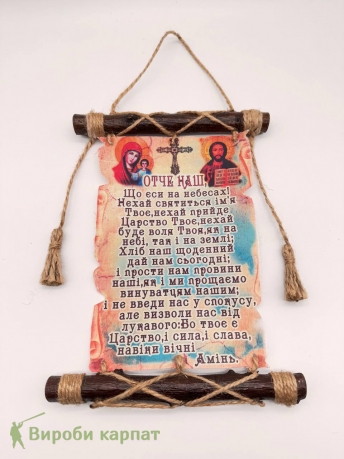 ОТЧЕ НАШ,
Що єси на небесах!
Нехай святиться ім'я
Твоє,нехай прийде
Царство Твоє,нехай
буде воля Твоя,як на
небі, так і на землі;
Хліб наш щоденний
дай нам сьогодні;
і прости нам провини
наші,як і ми прощаємо
винуватцям нашим;
і не введи нас у спокусу,
але визволи нас від
лукавого:Бо твоє є
Царство,і сила,і слава,
навіки вічні.
Амінь.
Вироби карпат